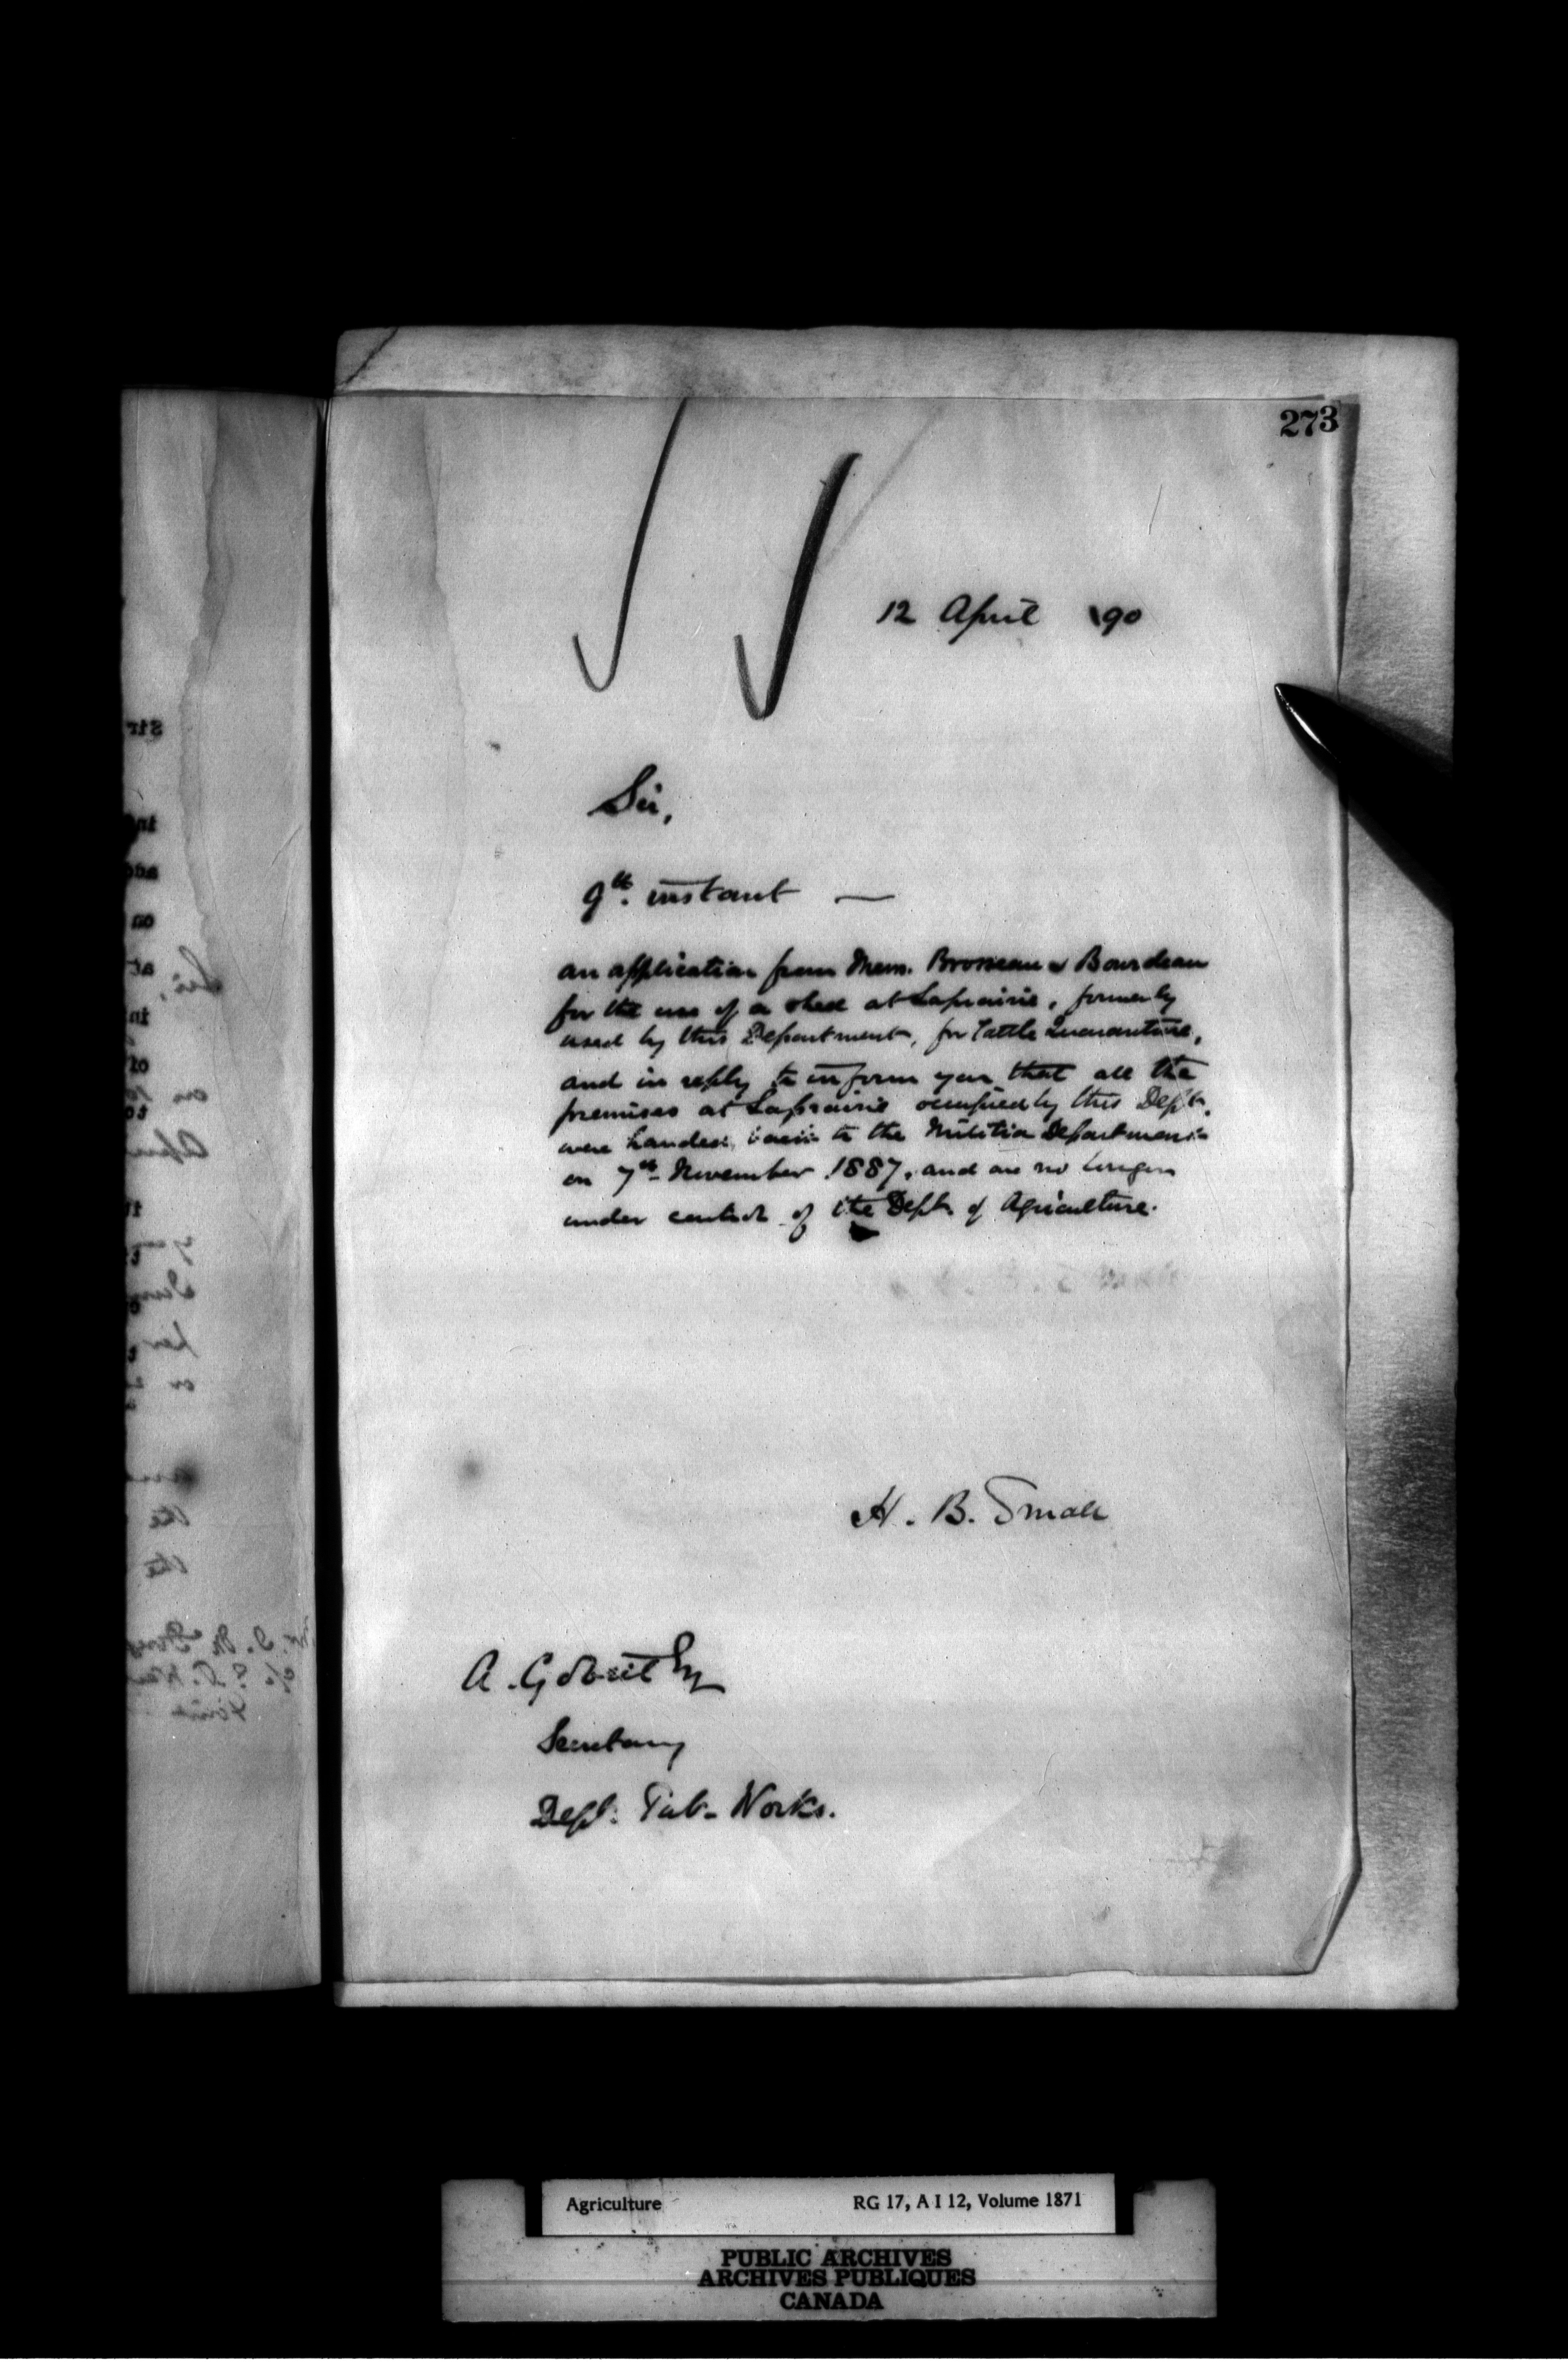 273
12 April 90
Sir,
9th. instant —
an application from Messrs. Brosseau & Bourdeau
for the use of a shed at Laprairie, formerly
used by this Department, for Cattle Quarantine,
and in reply to inform you that all the
premises at Laprairie occupied by this Dept.
were handed back to the Militia Department
on 7th November 1887, and are no longer
under control of the Dept. of Agriculture.
H. B. Small
A. Gobeil Esq
Secretary
Dept. Pub. Works.
Agriculture RG 17, A I 12, Volume 1871
PUBLIC ARCHIVES
ARCHIVES PUBLIQUES
CANADA